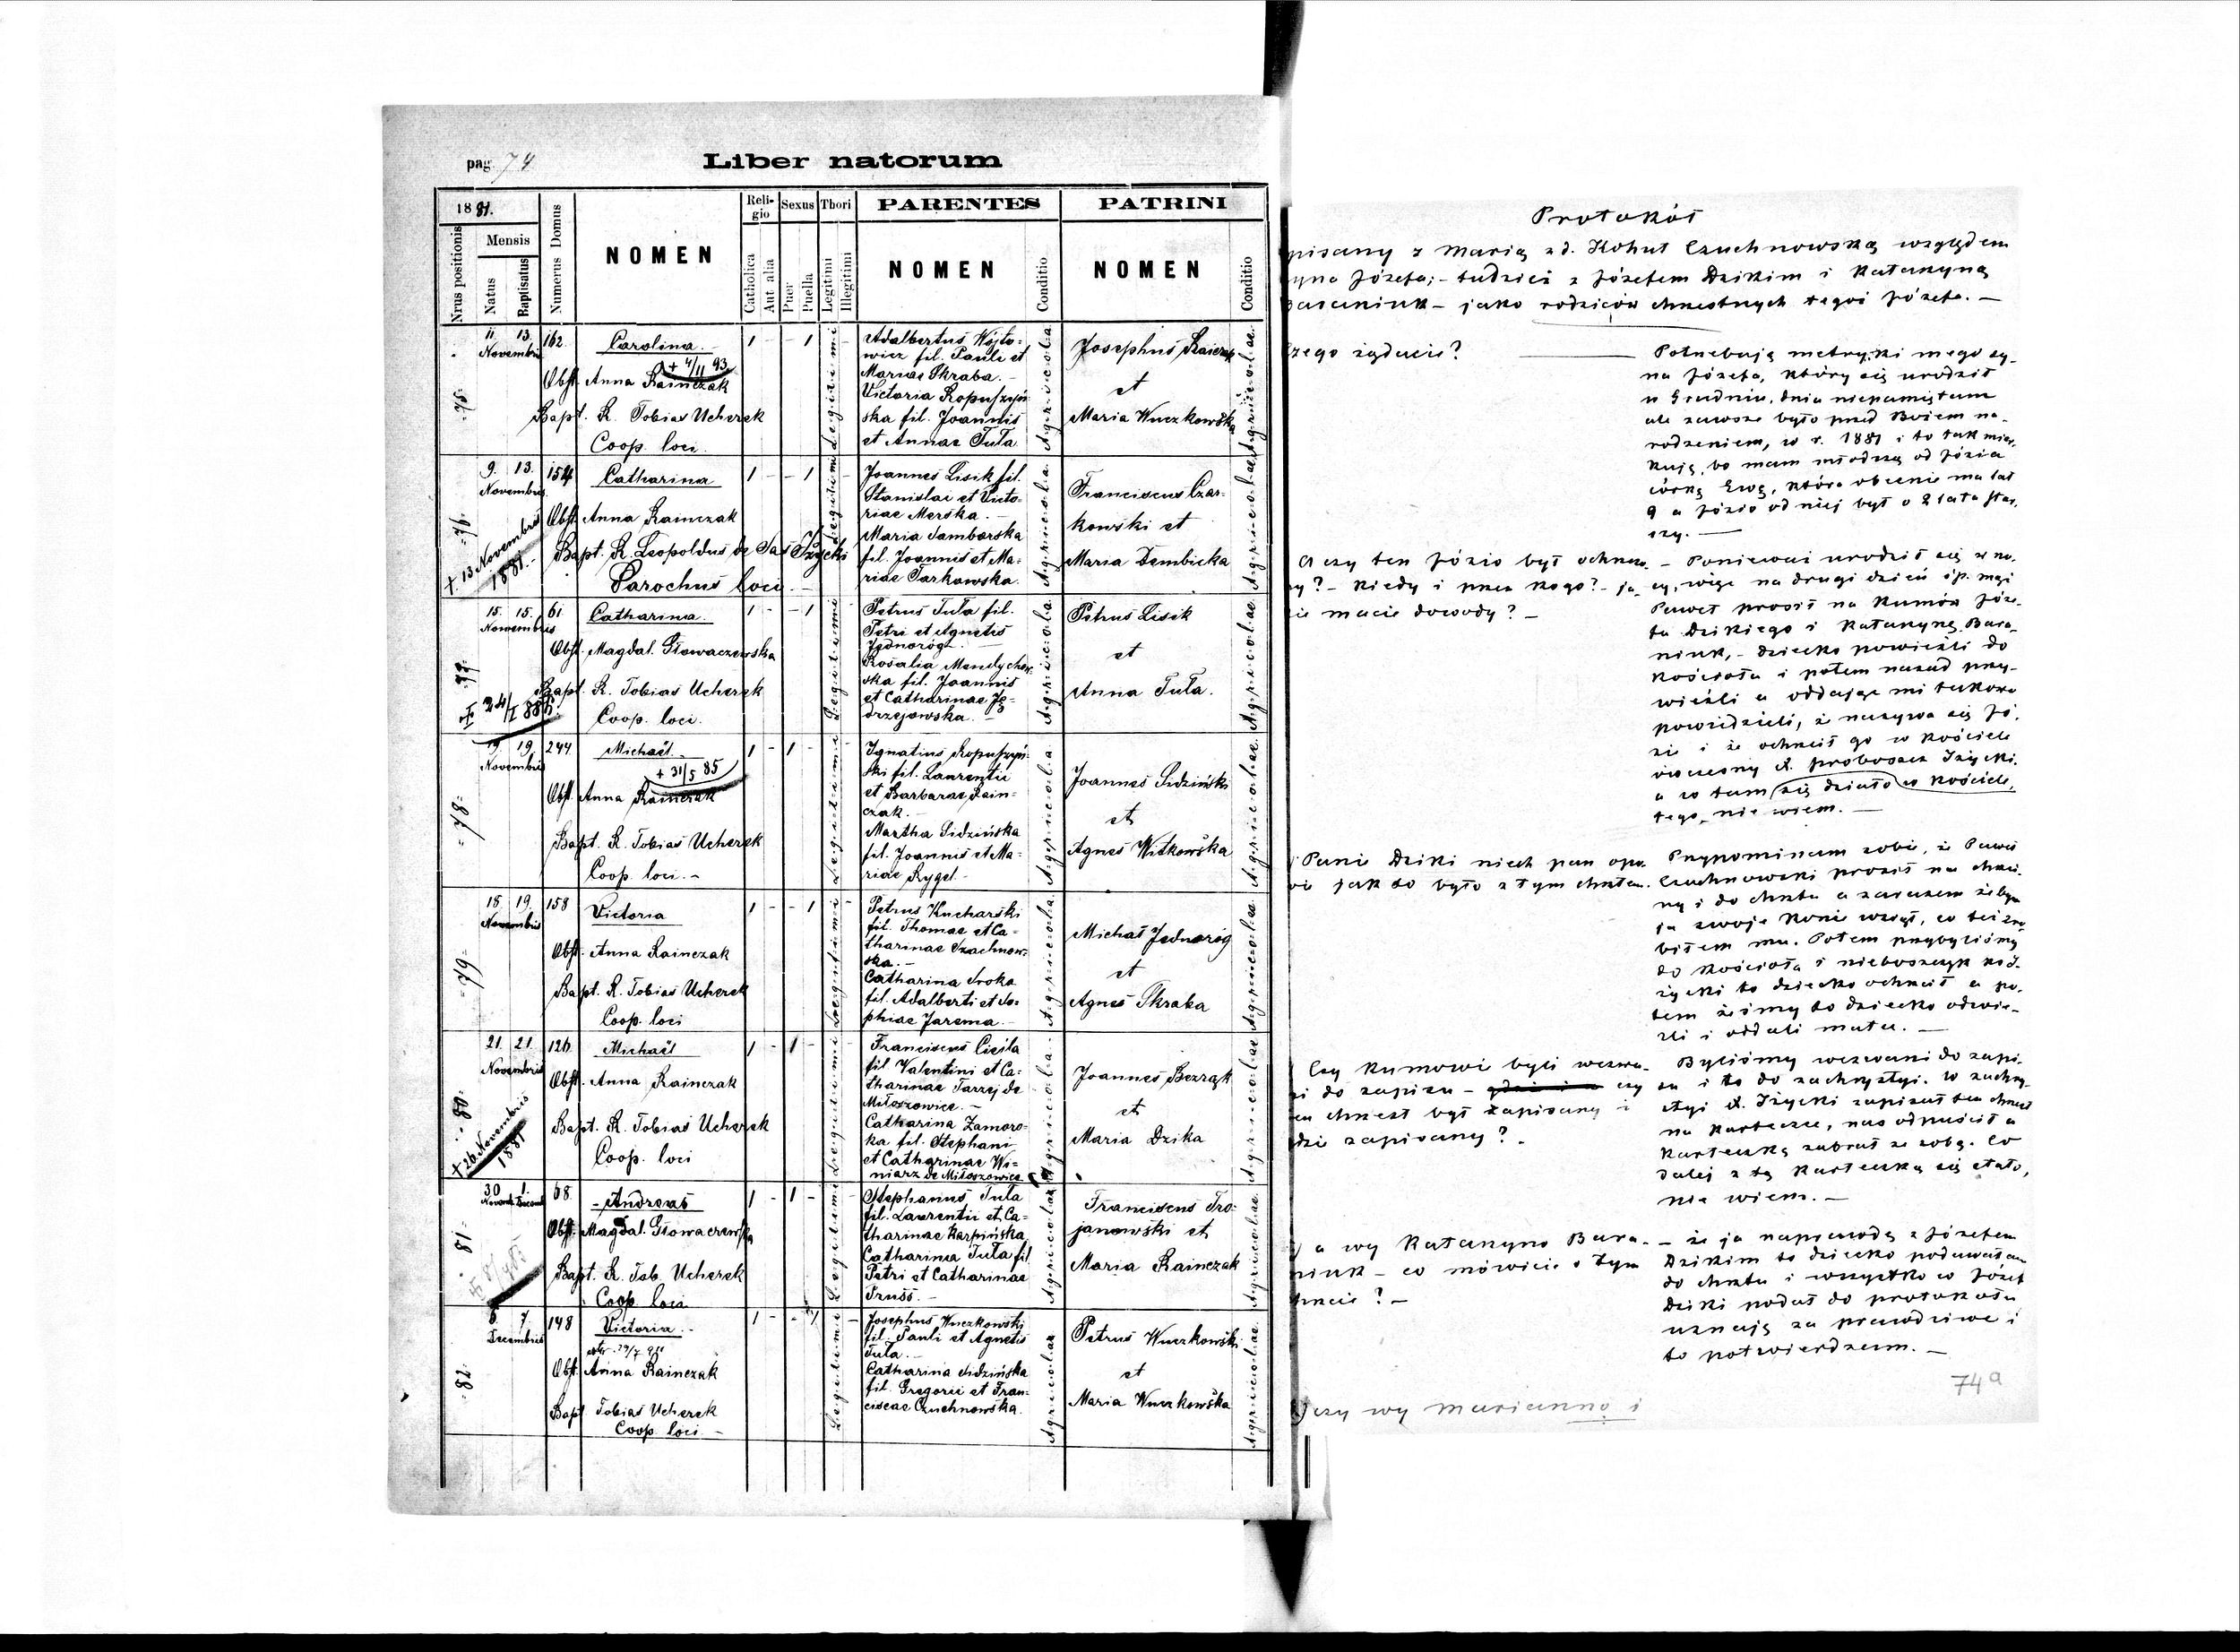 pag. 74
Liber natorum
1881.
Nrus positionis
Mensis
Natus
Baptisatus
Numerus Domus
NOMEN
Religio
Catholica
Aut alia
Sexus
Puer
Puella
Thori
Legitimi
Illegitimi
PARENTES
NOMEN
Conditio
PATRINI
NOMEN
Conditio
75.
11. 13.
Novembris
162
Carolina
+ 4/11 93
Obst. Anna Rainczak
Bapt. R. Tobias Ucherek
Coop. loci.
1 - - 1
Legitimi
Adalbertus Wójto-
wicz fil. Pauli et
Mariae Skraba.
Victoria Ropuszyń
ska fil. Joannis
et Annae Tuła
Agricolae
Josephus
et
Maria Wuczkowska
Agricolae
76.
9. 13.
Novembris
+ 13 Novembris
1881.
154
Catharina
Obst. Anna Rainczak
Bapt. R. Leopoldus de Sas Iżycki
Parochus loci.
1 - - 1
Legitimi
Joannes Lisik fil.
Stanislai et Victo-
riae Merska.
Maria Samborska
fil. Joannis et Ma-
riae Tarkowska.
Agricolae
Franciscus Czar-
kowski et
Maria Dembicka
Agricolae
77.
15. 15.
Novembris
61.
Catharina
Obst. Magdal. Głowaczewska
Bapt. R. Tobias Ucherek
Coop. loci.
1 - - 1
Legitimi
Petrus Tuła fil.
Petri et Agnetis
Jednoróg.
Rosalia Mandychow
ska fil. Joannis
et Catharinae Ję-
drzejowska.
Agricolae
Petrus Lisik
et
Anna Tuła.
Agricolae
78.
19. 19.
Novembris
244
Michaël
+ 31/5 85
Obst. Anna Rainczak
Bapt. R. Tobias Ucherek
Coop. loci.
1 - 1 -
Legitimi
Ignatius Ropuszyń
ski fil. Laurentii
et Barbarae Rain-
czak.
Martha Sidzińska
fil. Joannis et Ma-
riae Rygel.
Agricolae
Joannes Sidziński
et
Agnes Witkowska
Agricolae
79.
18. 19.
Novembris
158
Victoria
Obst. Anna Rainczak
Bapt. R. Tobias Ucherek
Coop. loci
1 - - 1
Legitimi
Petrus Kucharski
fil. Thomae et Ca-
tharinae Czuchnow-
ska.
Catharina Sroka
fil. Adalberti et So-
phiae Jarema.
Agricolae
Michał Jednoróg
et
Agnes Skraba
Agricolae
80.
21. 21.
Novembris
+ 26 Novembris
1881
126
Michaël
Obst. Anna Rainczak
Bapt. R. Tobias Ucherek
Coop. loci
1 - 1 -
Legitimi
Franciscus Cisiła
fil. Valentini et Ca-
tharinae Tarzej de
Miłoszowice.
Catharina Zamoro-
ka fil. Stephani
et Catharinae Wi-
niarz de Miłoszowice
Agricolae
Joannes Bezrąk
et
Maria Dzika
Agricolae
81.
30 1.
68.
Andreas
Obst. Magdal. Głowaczewska
Bapt. R. Tob. Ucherek
Coop. loci
1 - 1 -
Legitimi
Stephanus Tuła
fil. Laurentii et Ca-
tharinae Karpińska
Catharina Tuła fil
Petri et Catharinae
Pruss.
Agricolae
Franciscus Tro-
janowski et
Maria Rainczak
Agricolae
82.
6. 7.
Decembris
148
Victoria
Obst. Anna Rainczak
Bapt Tobias Ucherek
Coop. loci.
1 - - 1
Legitimi
Josephus Wuczkowski
fil. Pauli et Agnetis
Tuła.
Catharina Sidzińska
fil. Gregorii et Fran-
ciscae Czuchnowska.
Agricolae
Petrus Wuczkowski
et
Maria Wuczkowska
Agricolae
Protokół
pisany z Marią zd. Kohut Czuchnowską względem
yna Józefa; - tudzież z Józefem Dzikim i Katarzyną
Baraniuk - jako rodziców chrzestnych tegoż Józefa. -
czego żądacie?
Potrzebują metryki mego sy-
na Józefa, który się urodził
w Grudniu, dnia niepamiętam
ale zawsze było przed Bożem na-
rodzeniem, w r. 1881 i to tak miar-
kują, bo mam młodszą od Józia
córkę Ewę, która obecnie ma lat
9 a Józio od niej był o 2 lata star
szy. -
A czy ten Józio był ochrzco-
ny? - Kiedy i przez kogo? - ja-
kie macie dowody? -
- Ponieważ urodził się w no-
cy, więc na drugi dzień śp. mąż
Paweł prosił na kumów Józe-
fa Dzikiego i Katarzynę Bara-
niuk, - dziecko powieźli do
Kościoła i potem nazad przy-
wieźli a oddając mi takowe
powiedzieli, że nazywa się Jó-
zio i że ochrzcił go w Kościele
wczesny X. proboszcz Iżycki.
a co tam się działo w Kościele,
tego nie wiem. -
Panie Dziki niech pan opo-
wie jak to było z tym chrztem.
Przypominam sobie, że Paweł
Czuchnowski prosił na chrzci-
ny i do chrztu a zarazem żebym
ja swoje konie wziął, co też zro-
biłem mu. Potem przybyliśmy
do Kościoła i nieboszczyk X. I-
życki to dziecko ochrzcił a po-
tem żeśmy to dziecko odwie-
źli i oddali matce. -
Czy Kumowie byli wezwa-
ni do zapisu - czy
ten chrzest był zapisany i
gdzie zapisany? -
Byliśmy wezwani do zapi-
su i to do zachrystyi. W zachry-
styi X. Iżycki zapisał ten chrzest
na karteczce, nas odpuścił a
karteczkę zabrał ze sobą. Co
dalej z tą karteczką się stało,
nie wiem. -
a wy Katarzyno Bara-
niuk - co mówicie o tym
chrzcie? -
- że ja naprawdę z Józefem
Dzikim to dziecko podawałam
do chrztu i wszystko co Józef
Dziki podał do protokołu
uznaję za prawdziwe i
to potwierdzam. -
czy wy Marianno i
74a